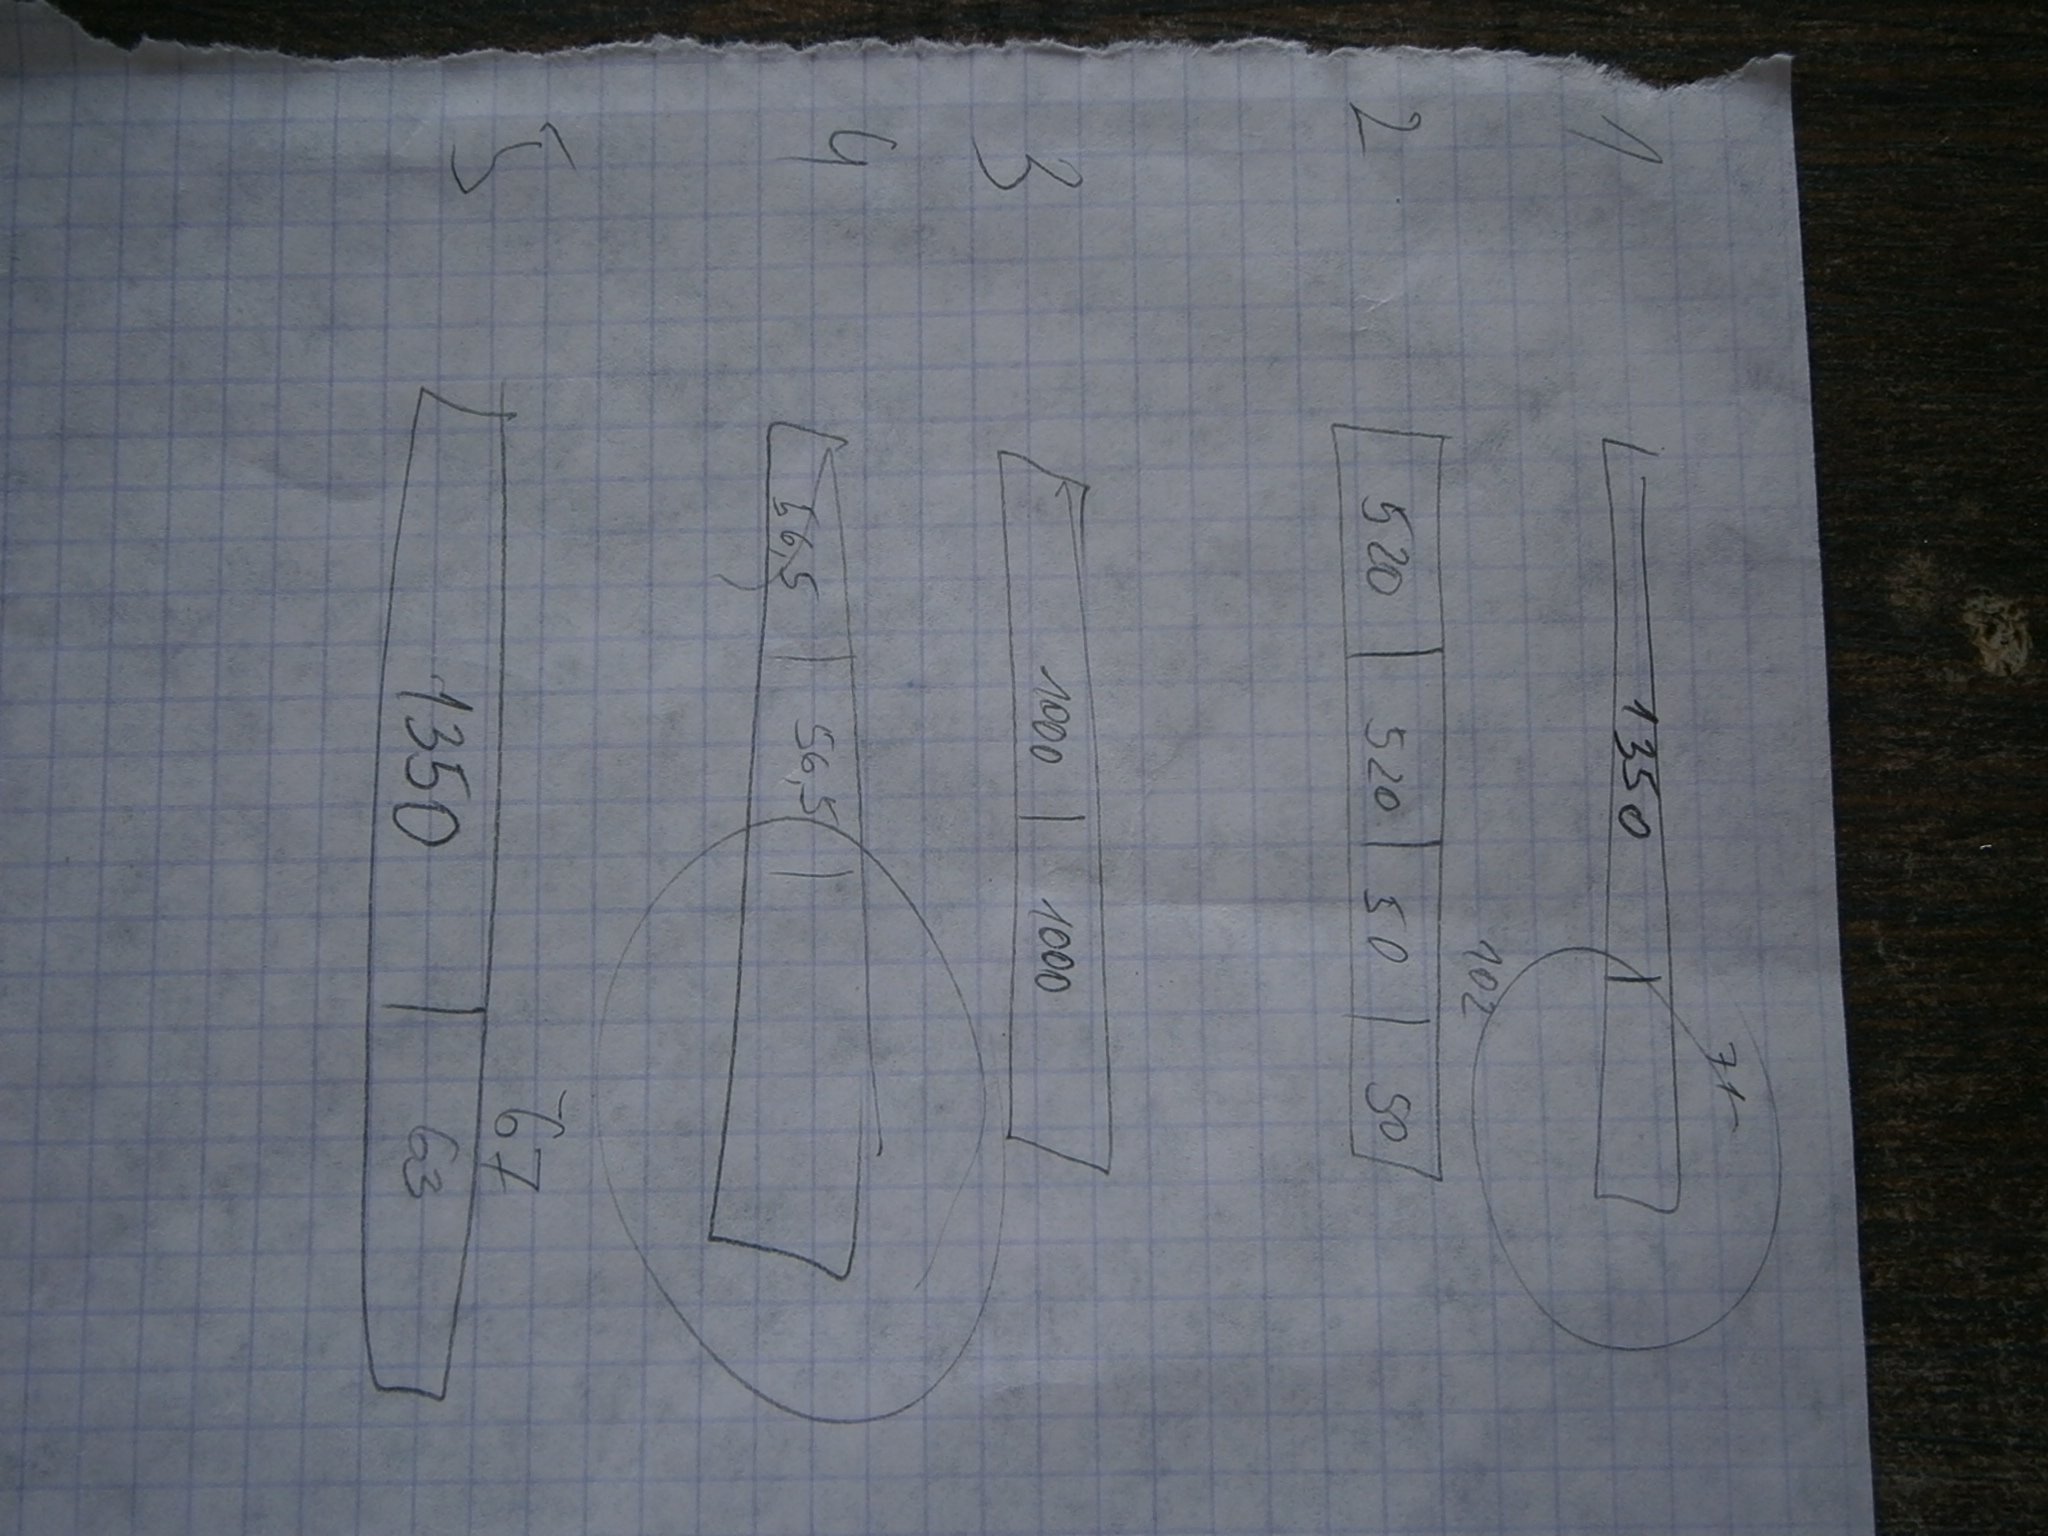 1
1350
71
2
520 520 50 50
102
3
1000 1000
4
56,5 56,5
5
1350 63
67